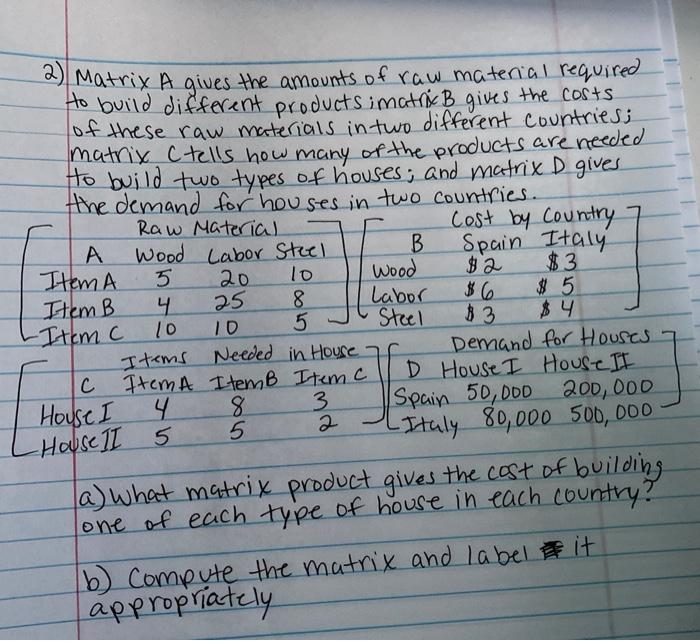 2) Matrix A gives the amounts of raw material required
to build different products; matrix B gives the costs
of these raw materials in two different countries;
matrix C tells how many of the products are needed
to build two types of houses; and matrix D gives
the demand for houses in two countries.
Raw Material
A Wood Labor Steel
Item A 5 20 10
Item B 4 25 8
Item C 10 10 5
Cost by Country
B Spain Italy
Wood $2 $3
Labor $6 $5
Steel $3 $4
Items Needed in House
C Item A Item B Item C
House I 4 8 3
House II 5 5 2
Demand for Houses
D House I House II
Spain 50,000 200,000
Italy 80,000 500,000
a) What matrix product gives the cost of building
one of each type of house in each country?
b) Compute the matrix and label it
appropriately